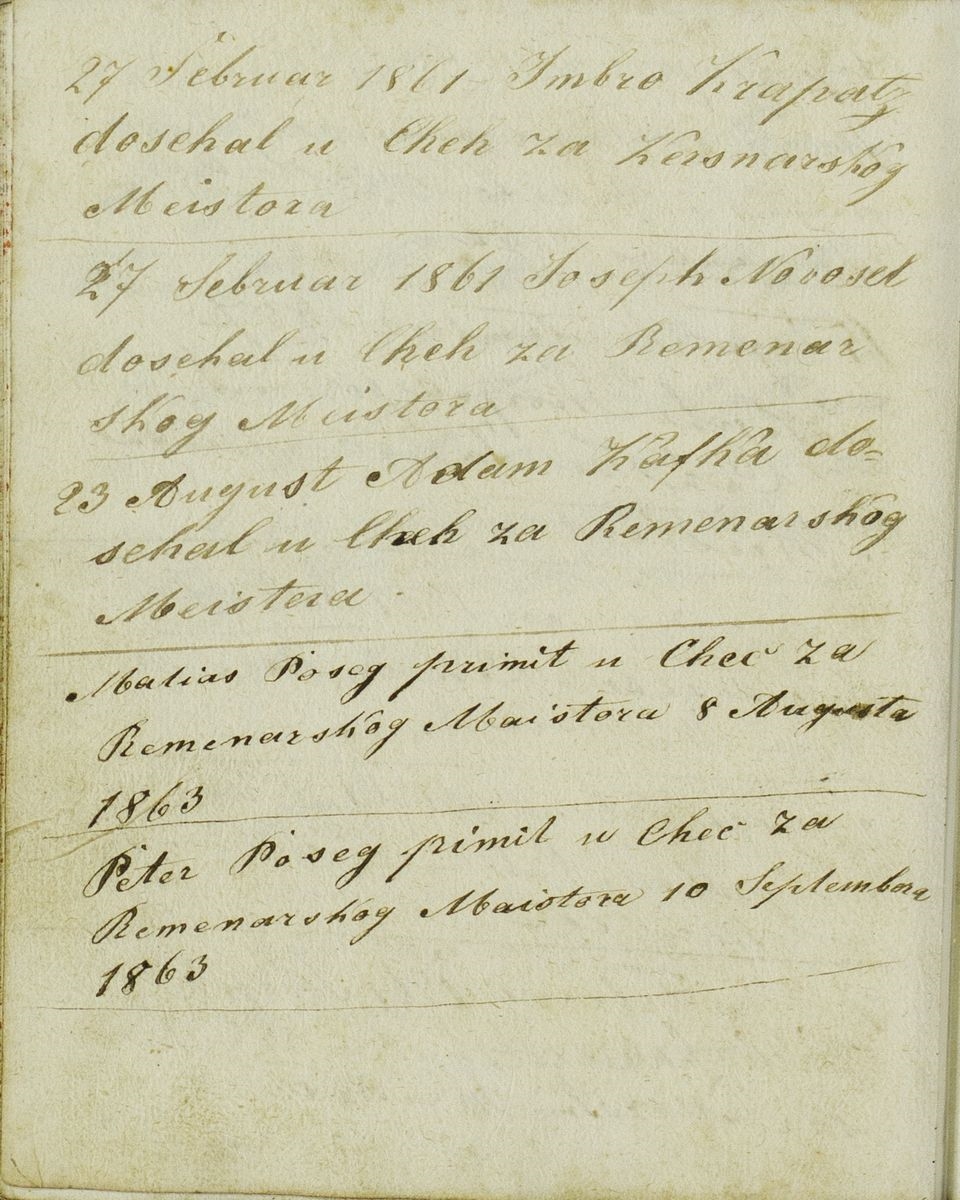 27 Februar 1861 Imbro Krapatz
dosehal u Cheh za Kersnarskog
Meistora
27 Februar 1861 Joseph Novosel
dosehal u Cheh za Remenar
skog Meistora
23 August Adam Kafka do=
sehal u Cheh za Remenarskog
Meistera
Matias Poseg primit u Chec za
Remenarskog Maistora 8 Augusta
1863
Peter Poseg pimit u Chec za
Remenarskog Maistora 10 Septembera
1863